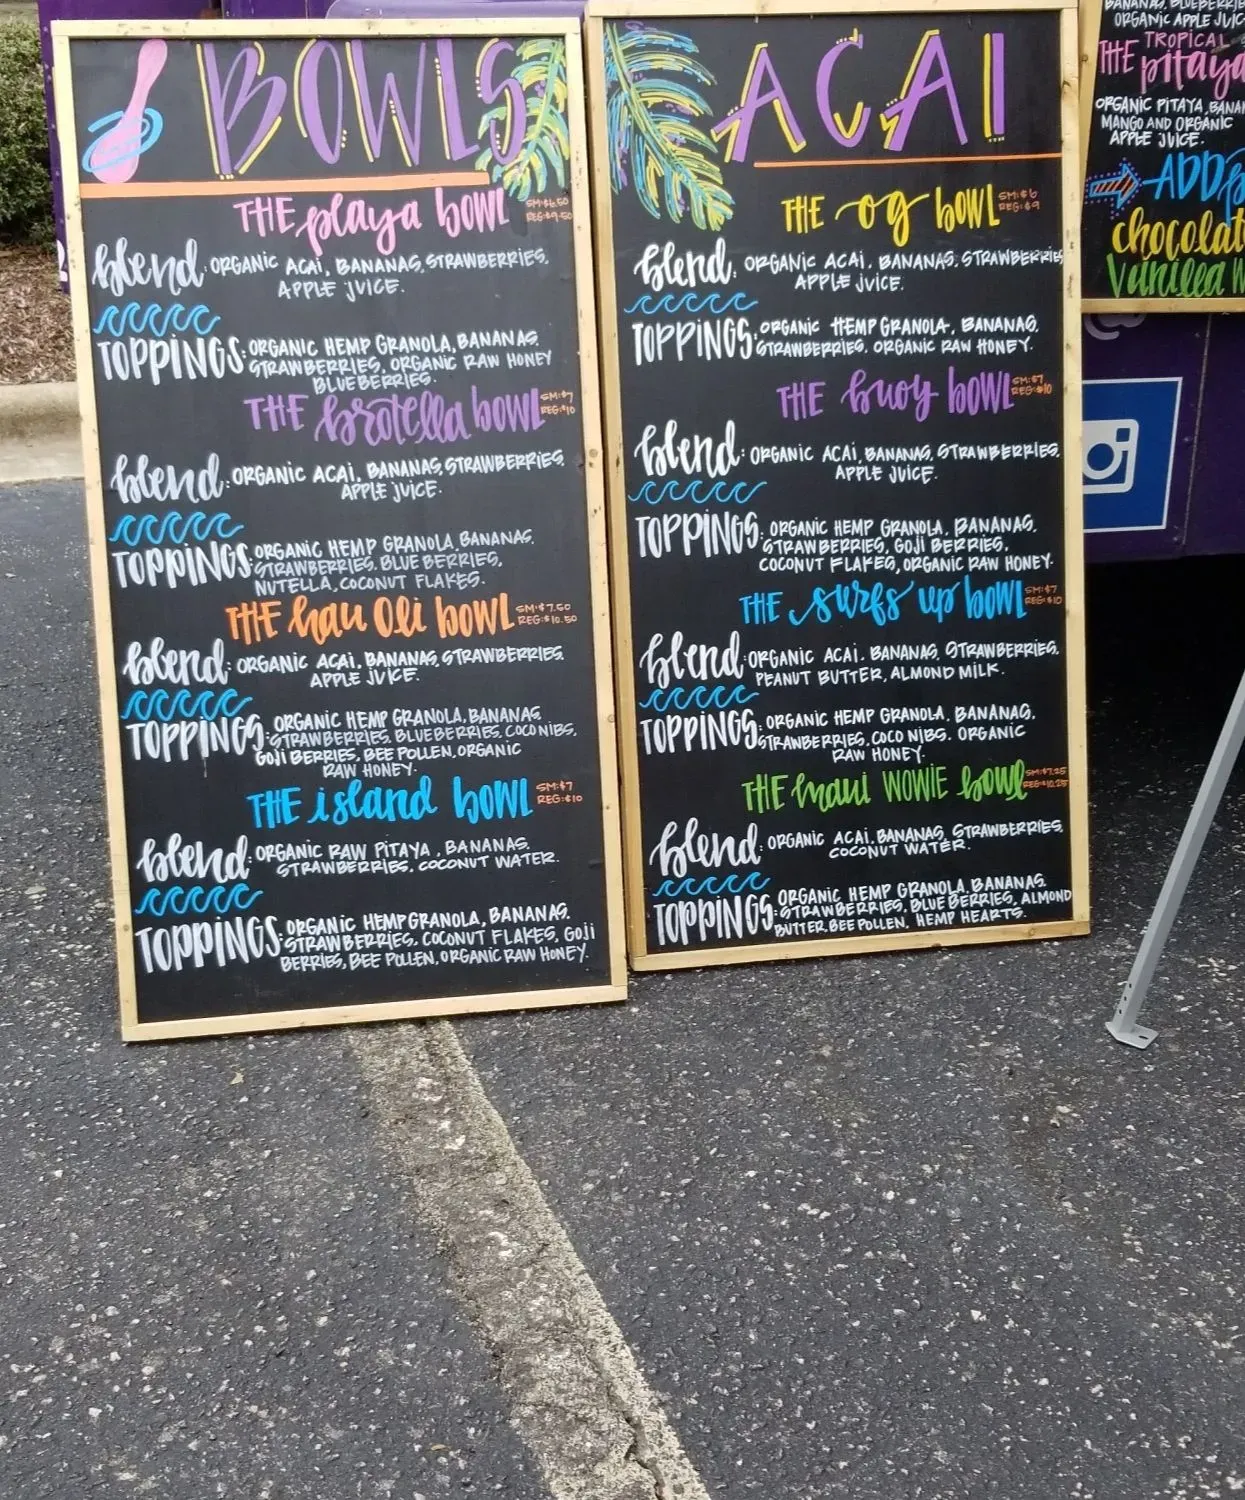 BOWLS
THE playa bowl
SM:$6.50
REG:$9.50
blend: ORGANIC ACAI, BANANAS, STRAWBERRIES,
APPLE JUICE.
TOPPINGS: ORGANIC HEMP GRANOLA, BANANAS,
STRAWBERRIES, ORGANIC RAW HONEY
BLUEBERRIES.
THE brotella bowl
SM:$7
REG:$10
blend: ORGANIC ACAI, BANANAS, STRAWBERRIES,
APPLE JUICE.
TOPPINGS: ORGANIC HEMP GRANOLA, BANANAS,
STRAWBERRIES, BLUEBERRIES,
NUTELLA, COCONUT FLAKES.
THE hau Oli bowl
SM:$7.50
REG:$10.50
blend: ORGANIC ACAI, BANANAS, STRAWBERRIES,
APPLE JUICE.
TOPPINGS: ORGANIC HEMP GRANOLA, BANANAS,
STRAWBERRIES, BLUEBERRIES, COCO NIBS,
GOJI BERRIES, BEE POLLEN, ORGANIC
RAW HONEY.
THE island bowl
SM:$7
REG:$10
blend: ORGANIC RAW PITAYA, BANANAS,
STRAWBERRIES, COCONUT WATER.
TOPPINGS: ORGANIC HEMP GRANOLA, BANANAS,
STRAWBERRIES, COCONUT FLAKES, GOJI
BERRIES, BEE POLLEN, ORGANIC RAW HONEY.
ACAI
THE og bowl
SM:$6
REG:$9
blend: ORGANIC ACAI, BANANAS, STRAWBERRIES
APPLE JUICE.
TOPPINGS: ORGANIC HEMP GRANOLA, BANANAS,
STRAWBERRIES, ORGANIC RAW HONEY.
THE buoy bowl
SM:$7
REG:$10
blend: ORGANIC ACAI, BANANAS, STRAWBERRIES,
APPLE JUICE.
TOPPINGS: ORGANIC HEMP GRANOLA, BANANAS,
STRAWBERRIES, GOJI BERRIES,
COCONUT FLAKES, ORGANIC RAW HONEY.
THE surfs up bowl
SM:$7
REG:$10
blend: ORGANIC ACAI, BANANAS, STRAWBERRIES,
PEANUT BUTTER, ALMOND MILK.
TOPPINGS: ORGANIC HEMP GRANOLA, BANANAS,
STRAWBERRIES, COCO NIBS, ORGANIC
RAW HONEY.
THE maui WOWIE bowl
SM:$7.25
REG:$10.25
blend: ORGANIC ACAI, BANANAS, STRAWBERRIES,
COCONUT WATER.
TOPPINGS: ORGANIC HEMP GRANOLA, BANANAS,
STRAWBERRIES, BLUEBERRIES, ALMOND
BUTTER, BEE POLLEN, HEMP HEARTS.
BANANAS, BLUEBERRIE
ORGANIC APPLE JUIC
THE TROPICAL
pitaya
ORGANIC PITAYA, BANAN
MANGO AND ORGANIC
APPLE JUICE.
ADD
chocolat
Vanilla